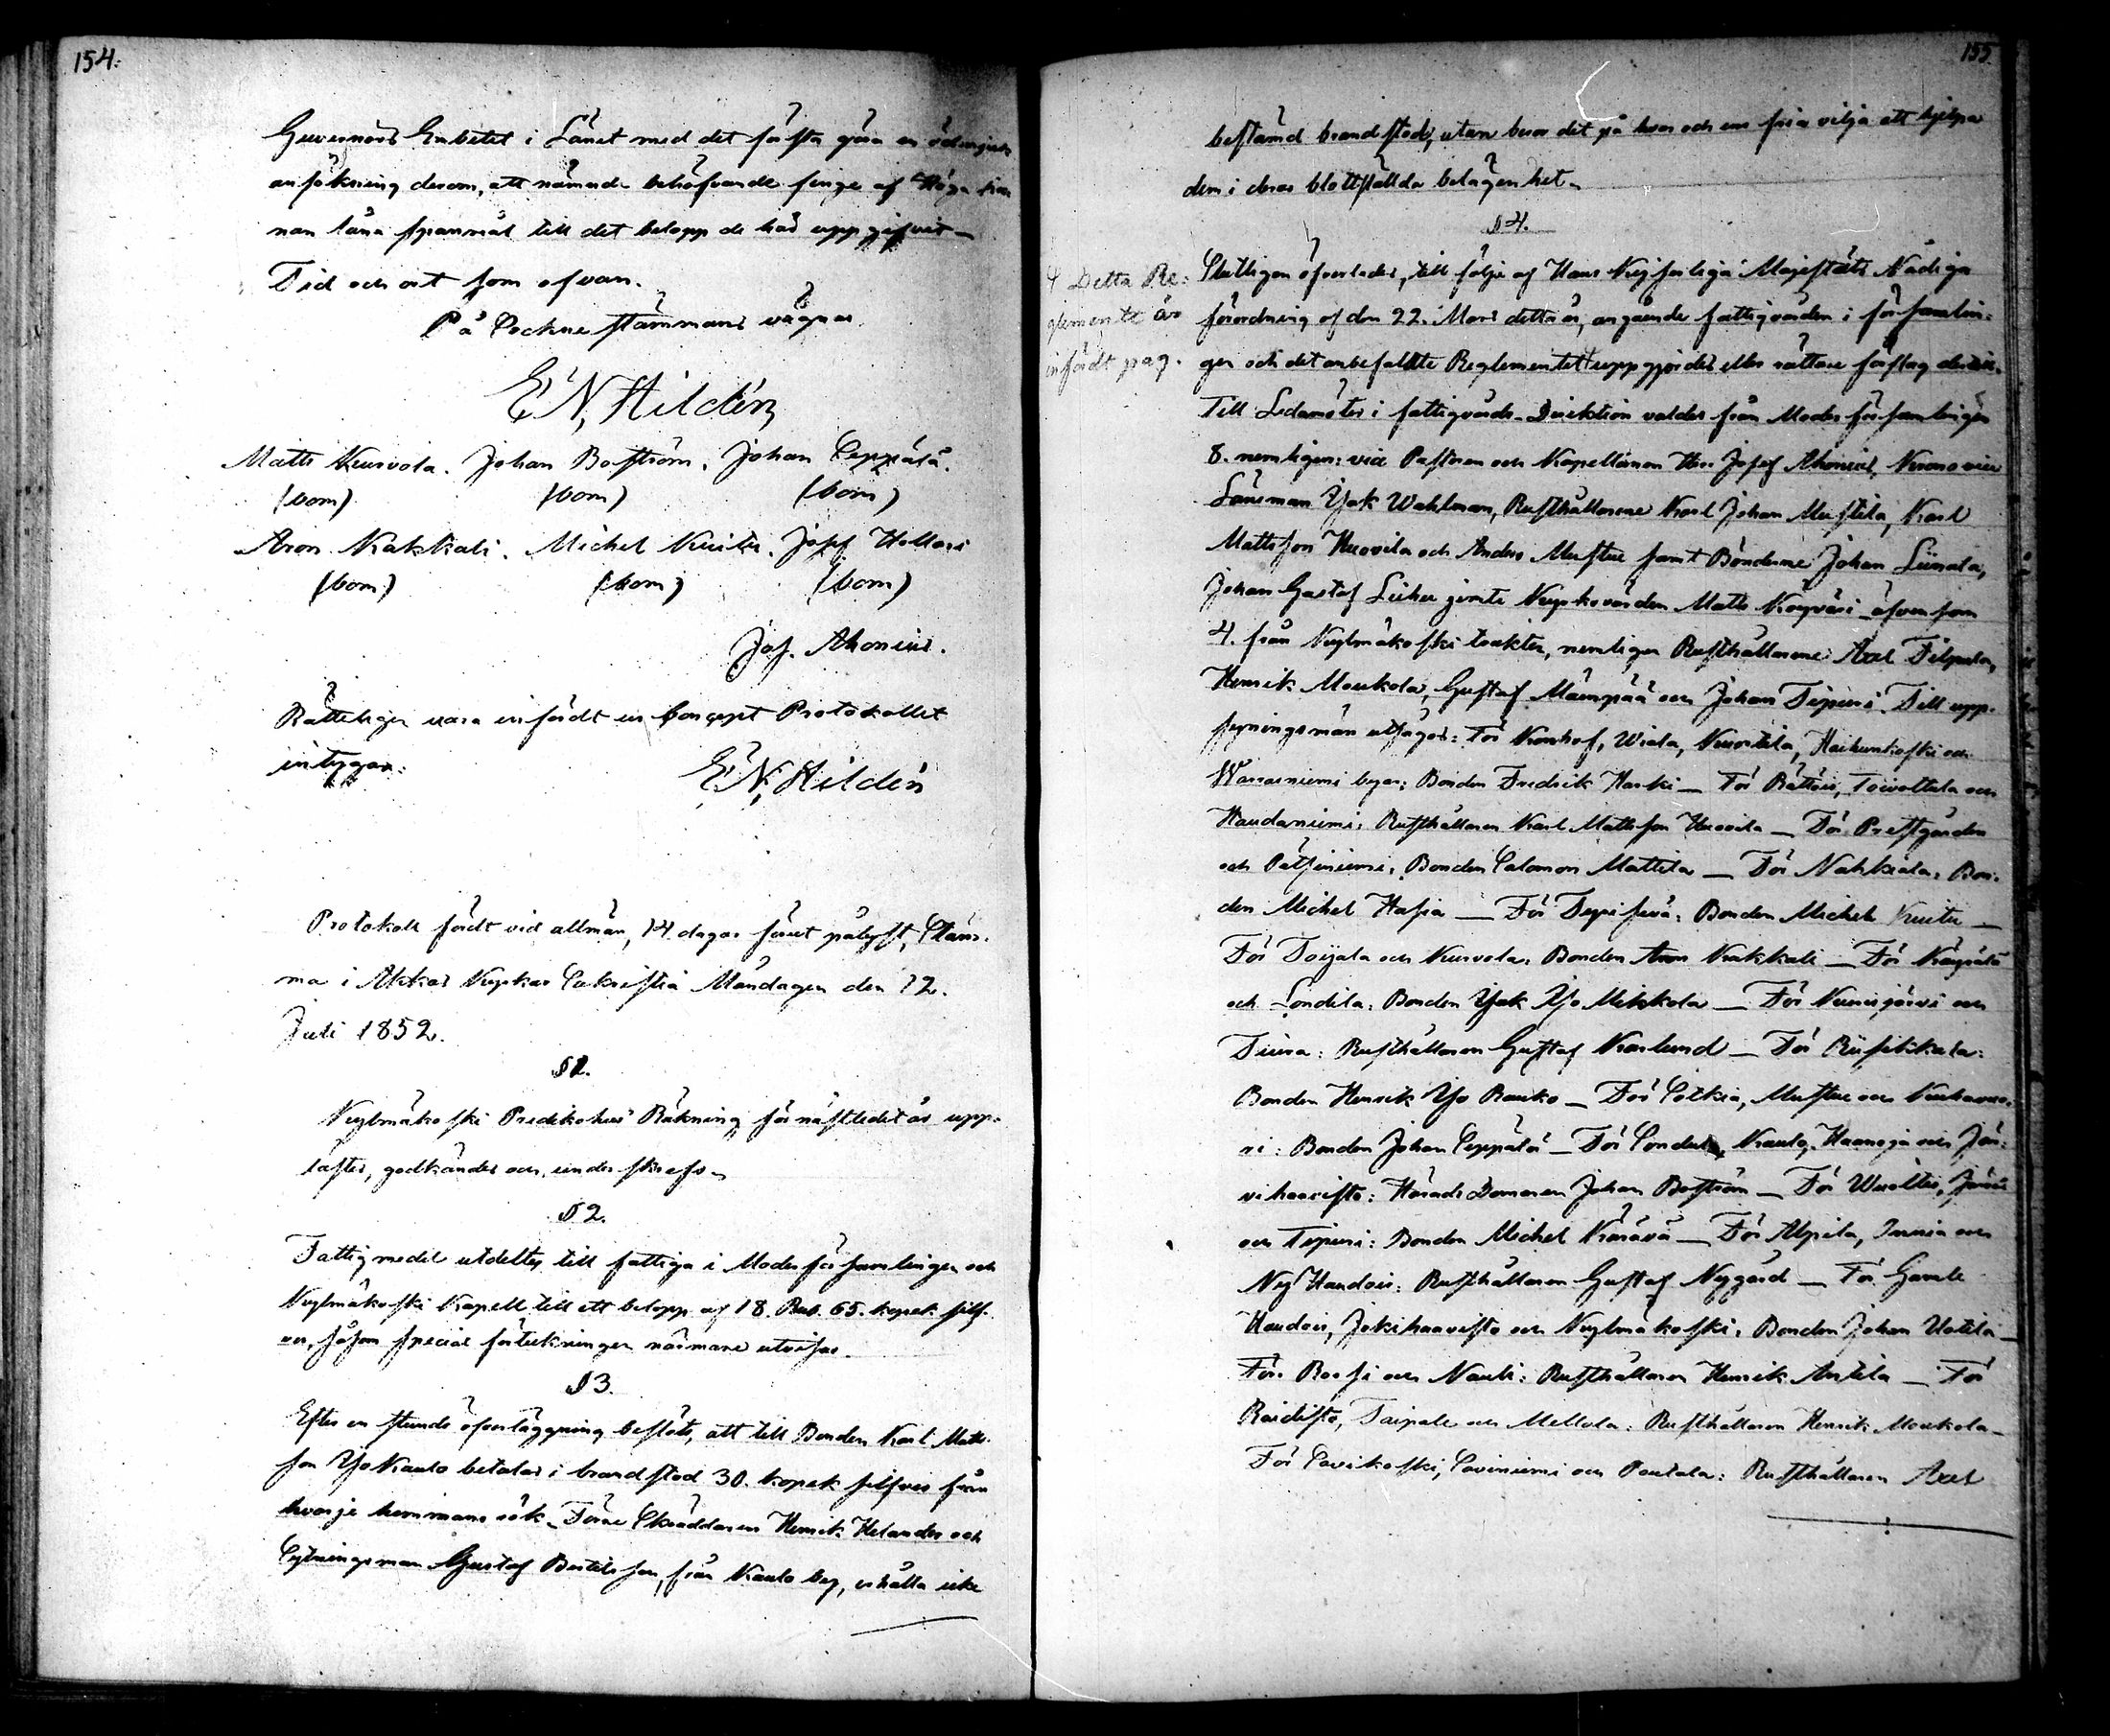 154.
Guvernörs Embetet i Länet med det första göra en ödmjuk
ansökning derom, att nämnde behöfvande finge af Höga Kro-
nan låna spannmål till det belopp de här uppgifvit
Tid och ort som ofvan.
På Sockne stämmans vägnar
E. N. Hildén
Matts Kurvola. Johan Boström. Johan Seppälä.
(bom) (bom) (bom)
Aron Kakkali. Michel Kuitu. Josef Hollari
(bom) (bom) (bom)
Jos. Ahonius.
Rätteligen vara infördt ur Concept Protokollet
intygar:
E. N. Hildén
Protokoll fördt vid allmän, 14 dagar förut pålyst, Stäm-
ma i Akkas Kyrkas Sakristia Måndagen den 12.
Juli 1852.
§ 1.
Kylmäkoski Predikohus Räkning för nästledet år upp-
lästes, godkändes och underskrefs
§ 2.
Fattigmedel utdeltes till fattiga i Moderförsamlingen och
Kylmäkoski Kapell till ett belopp af 18. Rub. 65. kopek silf-
ver, såsom special förteckningen närmare utvisar.
§ 3.
Efter en stunds öfverläggning beslöts, att till Bonden Karl Matts-
son Yso Kaulo betalas i brandstod 30. kopek silfver från
hvarje hemmans rök. Förre Skräddaren Henrik Helander och
Sytningsman Gustaf Bertilsson, från Kaulo by, erhålla icke
155.
bestämd brandstod, utan beror det på hvar och ens fria vilja att hjelpa
dem i deras blottställda belägenhet.
§ 4.
Slutligen öfverlades, till följe af Hans Kejserliga Majestäts Nådiga
förordning af den 22. Mars detta år, angående fattigvården i församlin-
gen och det anbefallte Reglementet uppgjordes eller rättare förslag dertill.
Detta Re-
glemente är
infördt pag.
Till Ledamöter i fattigvårds-Direktion valdes från Moderförsamlingen
8. nemligen: vice Pastoren och Kapellanen Herr Josef Ahonius, Krono
Länsman Isak Wahlman, Rusthållarene Karl Johan Mustila, Karl
Mattsson Huovila och Anders Mustue samt Bönderne Johan Liunala,
Johan Gustaf Liuhu jemte Kyrkovärden Matts Koyväri äfvensom
4. från Kylmäkoski trakten, nemligen Rusthållarene Axel Filpula,
Henrik Moukola, Gustaf Mäenpää och Johan Tipuri. Till upp-
syningsmän utsågos: För Konhof, Wiala, Kurvola, Haihunkoski och
Warrasniemi byar: Bonden Fredrik Harki — För Rättöis, Toivottula och
Haudaniemi: Rusthållaren Karl Mattsson Huovila — För Prestgården
och Pätsiniemi: Bonden Salomon Mattila — För Nahkiala: Bon-
den Michel Hasia — För Terisjärvi: Bonden Michel Kuitu —
För Toijala och Kurvola: Bonden Aron Kakkali — För Kärpälä
och Sondila: Bonden Isak Yso Mikkola — För Kurisjärvi och
Tiura: Rusthållaren Gustaf Karlund — För Riisikkala:
Bonden Henrik Yso Rauko — För Sotkia, Mustue och Kurhavuo-
ri: Bonden Johan Seppälä — För Sondula, Kaulo, Haanoja och Jär-
vihaavisto: Härads Domaren Johan Boström — För Wuoltis, Järvis
och Tipuri: Bonden Michel Kärävä — För Alpila, Innia och
Ny Haudois: Rusthållaren Gustaf Nygård — För Gamle
Haudois, Jokihaavisto och Kylmäkoski: Bonden Johan Uotila —
För Rossi och Nauli: Rusthållaren Henrik Antila — För
Raidisto, Taipale och Mellola: Rusthållaren Henrik Moukola —
För Savikoski, Saviniemi och Pourtala: Rusthållaren Axel